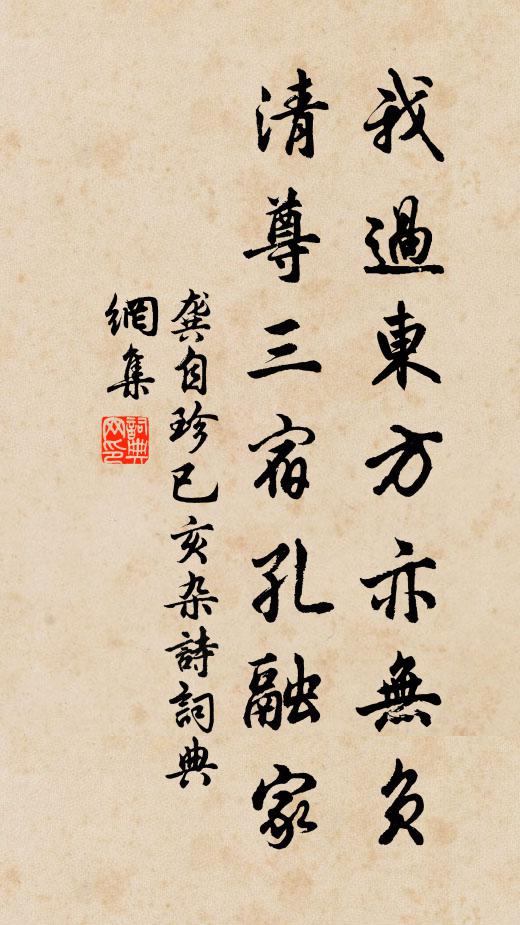 我過東方亦無負
清尊三宿孔融家
龔自珍已亥杂詩詞典
網集
詞典
网印